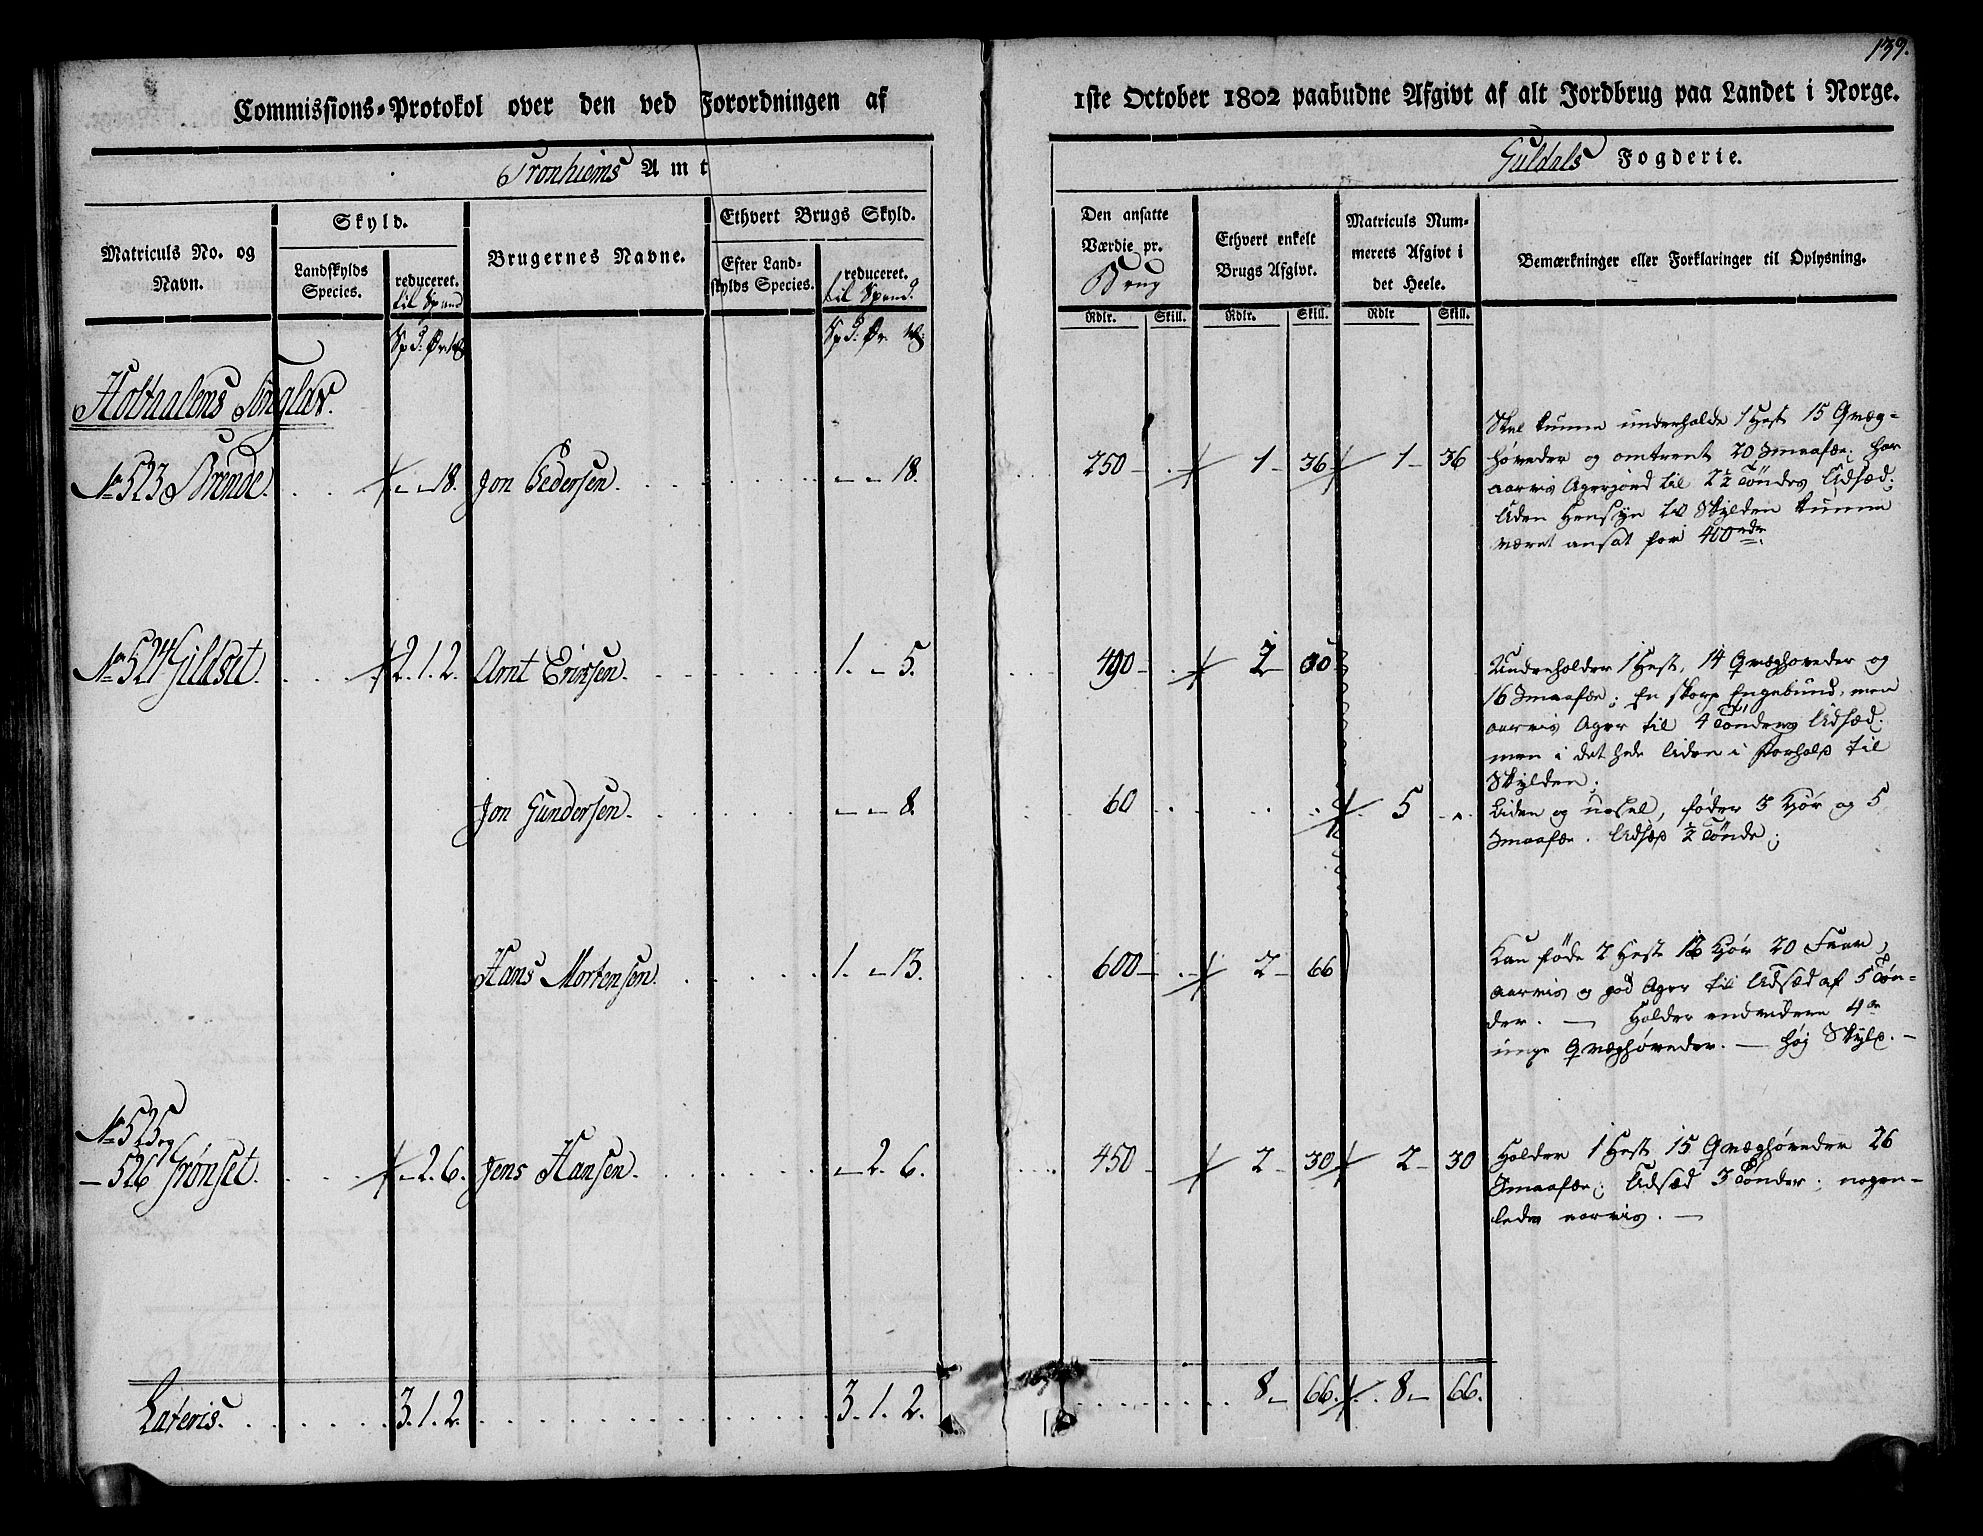 139.
Commissions-Protokol over den ved Forordningen af 1ste October 1802 paabudne Afgivt af alt Jordbrug paa Landet i Norge.
Tronhiems Amt
Guldals Fogderie.
Matriculs No. og Navn.
Skyld.
Landskylds Species.
reduceret. til Spand
Brugernes Navne.
Ethvert Brugs Skyld.
Efter Landskylds Species.
reduceret. til Spand.
Den ansatte Værdie pr. Brug
Ethvert enkelt Brugs Afgivt.
Matriculs Nummerets Afgivt i det Heele.
Bemærkninger eller Forklaringer til Oplysning.
Rdlr. Skill. Rdlr. Skill. Rdlr Skill.
Spd: Ør
Spd: Ør
Holtaalens
No 523 Brende. - - 18. Jon Pedersen. - - 18. 250 - 1 - 36 1 - 36
Skal kunne underholde 1 Hest 15 Qvæg-
høveder og omtrent 20 Smaafæ; har
aarvis Agerjord til 2 1/2 Tønders Udsæd;
Uden Hensyn til Skylden kunne
været ansat for 400 rdr.
No 524 Gildset. 2. 1. 2. Arnt Erichsen. 1. - 5. 490 - 2 - 30
Underholder 1 Hest, 14 Qvæghøveder og
16 Smaafæ; En skarp Engebund, men
aarvis Ager til 4 Tønders Udsæd.
men i det hele liden i Forhold til
Skylden.
Jon Gundersen. - - 8. 60 5 -
Liden og ussel, føder 3 Kiør og 5
Smaafæ. Udsæd 1/2 Tønde;
Hans Mortensen. 1. - 13. 600 - 2 - 66
Kan føde 2 Hest 12 Kiør 20 Faar,
aarvis og god Ager til Udsæd af 5 Tøn-
der. — Holder endvidere 4re
unge Qvæghøveder. — høj Skyld. —
No 525 og
- 526 Grønset. - 2. 6. Jens Hansen. - 2. 6. 450 - 2 - 30 2 - 30
Holder 1 Hest 15 Qvæghøveder 26
Smaafæ; Udsæd 3 Tønder; nogen-
lede aarvis. —
Lateris. 3. 1. 2. 3. 1. 2. 8 - 66. 8 - 66.